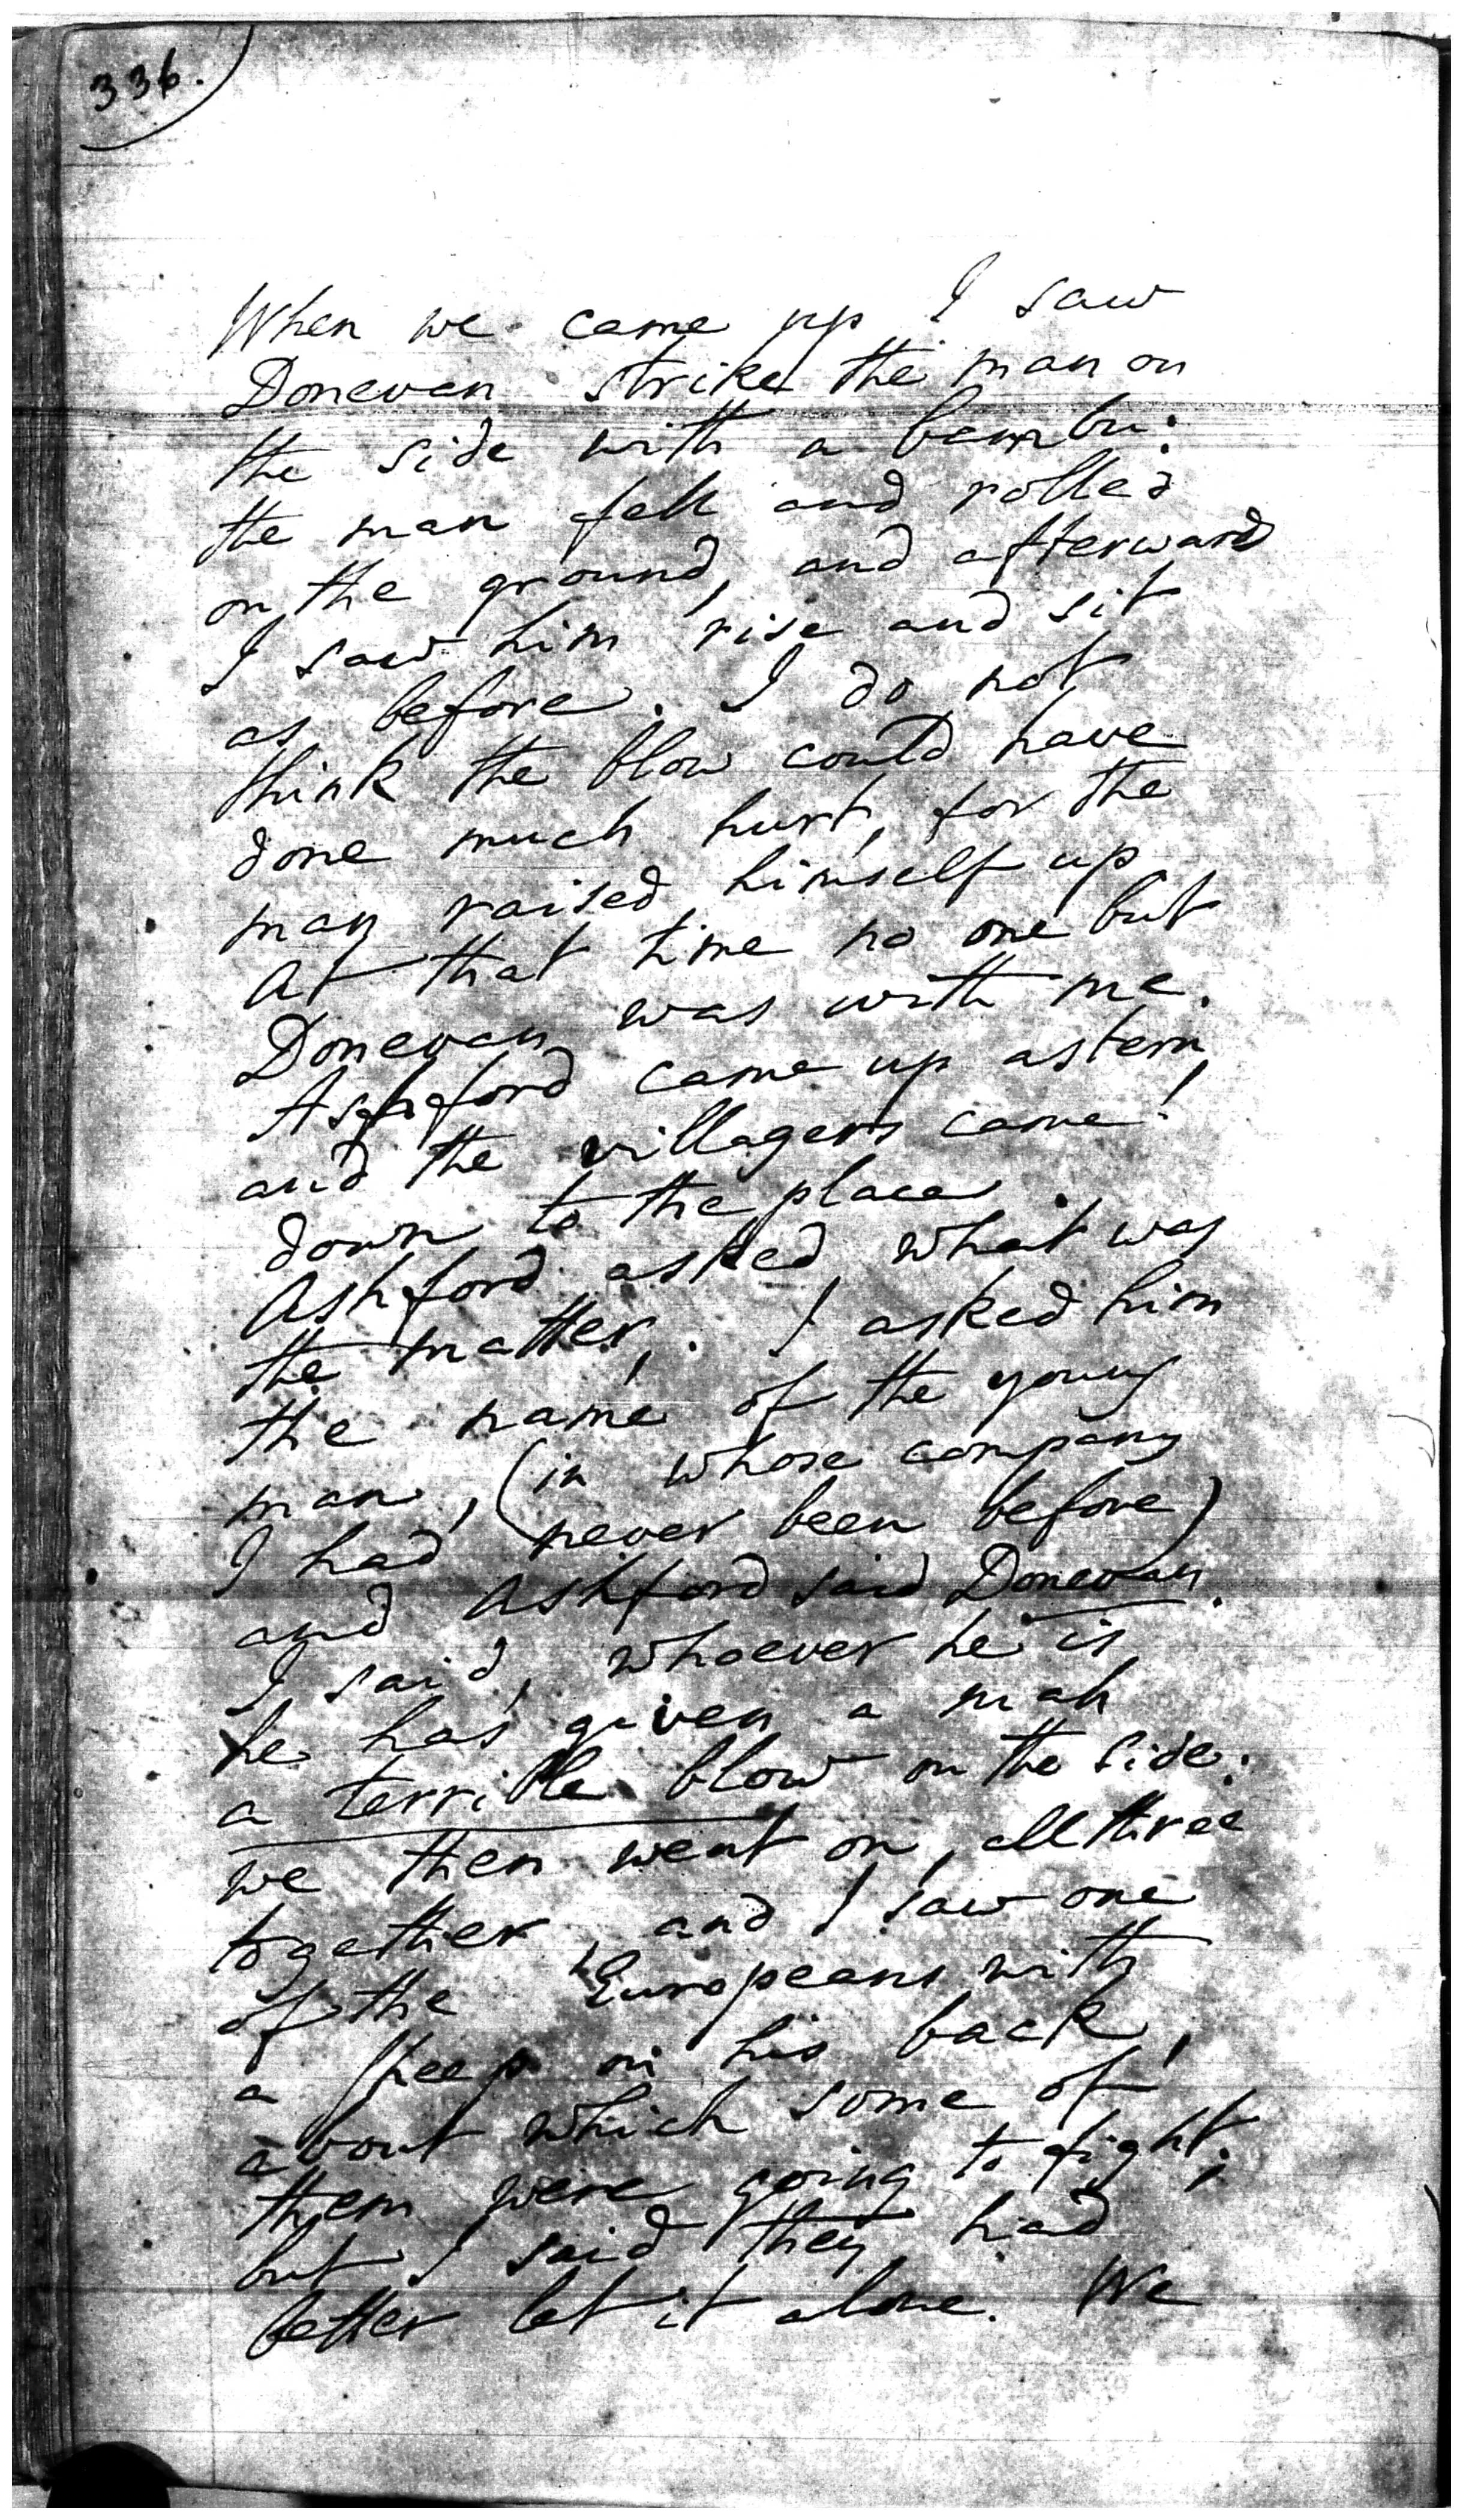 336.
When we came up I saw
Donevan strike the man on
the side with a bambu:
the man fell and rolled
on the ground, and afterwards
I saw him rise and sit
as before. I do not
think the blow could have
done much hurt, for the
man raised himself up
At that time no one but
Donevan was with me.
Ashford came up astern,
and the villagers came
down to the place.
Ashford asked what was
the matter. I asked him
the name of the young
man, (in whose company
I had never been before)
and Ashford said Donevan.
I said, whoever he is
he has given a man
a terrible blow on the side.
we then went on, all three
together, and I saw one
of the Europeans with
a sheep on his back,
about which some of
them were going to fight;
but I said they had
better let it alone. We